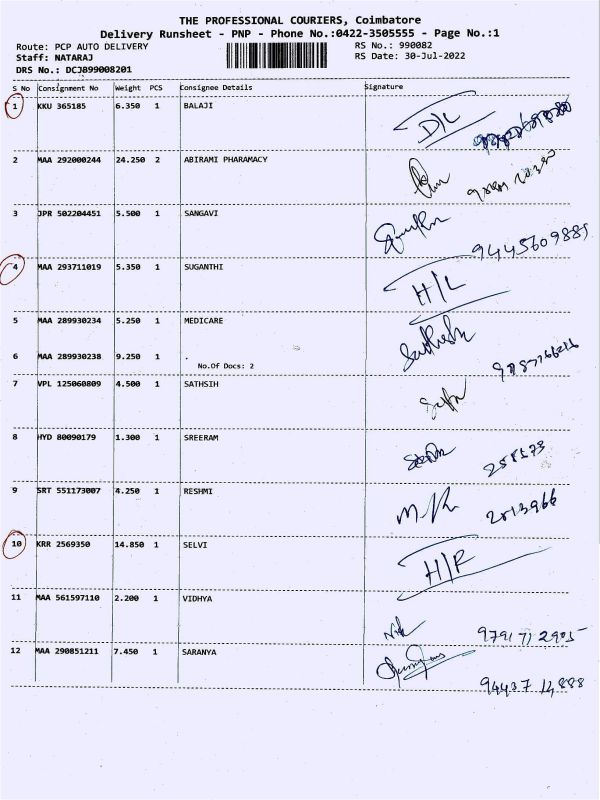 THE PROFESSIONAL COURIERS, Coimbatore
Delivery Runsheet - PNP - Phone No.:0422-3505555 - Page No.:1
Route: PCP AUTO DELIVERY RS No.: 990082
Staff: NATARAJ RS Date: 30-Jul-2022
DRS No.: DCJ899008201
S No Consignment No Weight PCS Consignee Details Signature
1 KKU 365185 6.350 1 BALAJI D/L
2 MAA 292000244 24.250 2 ABIRAMI PHARAMACY
3 JPR 502204451 5.500 1 SANGAVI 9445609885
4 MAA 293711019 5.350 1 SUGANTHI H/L
5 MAA 289930234 5.250 1 MEDICARE
6 MAA 289930238 9.250 1 .
No.Of Docs: 2
7 VPL 125060809 4.500 1 SATHSIH
8 HYD 80090179 1.300 1 SREERAM
9 SRT 551173007 4.250 1 RESHMI
10 KRR 2569350 14.850 1 SELVI H/R
11 MAA 561597110 2.200 1 VIDHYA
12 MAA 290851211 7.450 1 SARANYA